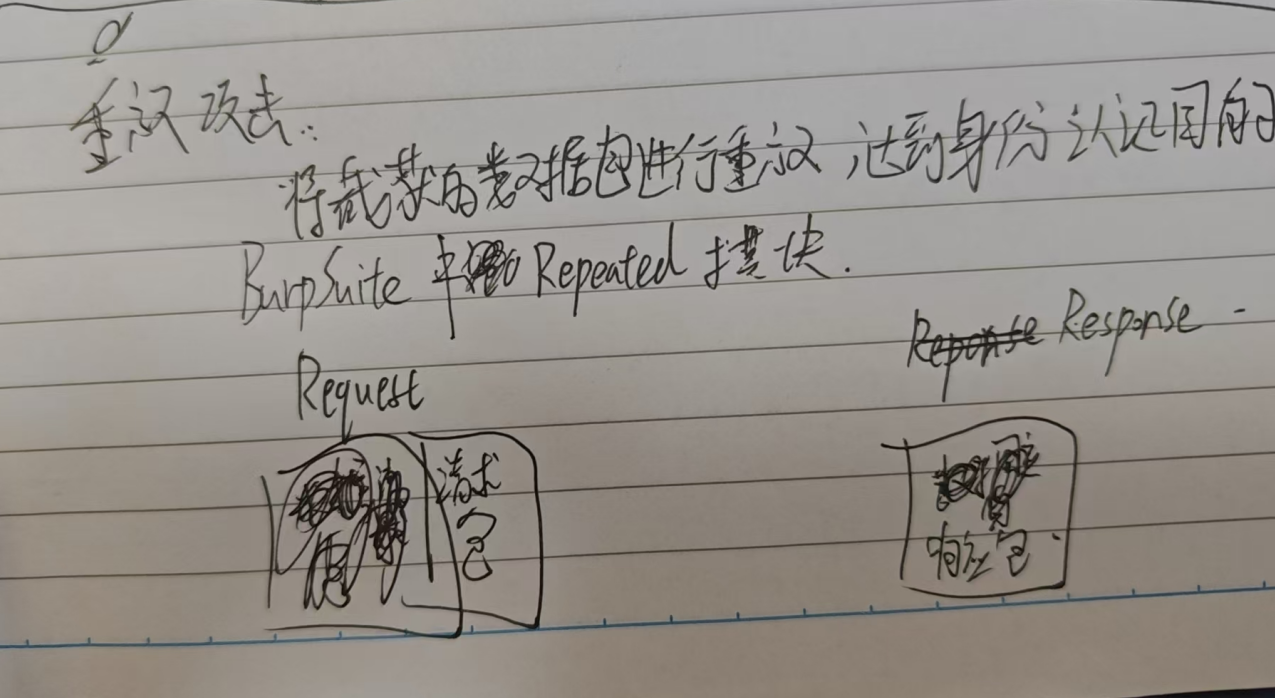 重议攻击:
将截获的数据包进行重议,达到身份认证目的
BurpSuite 中 Repeated 模块.
Request
Response
请求
包
响应包